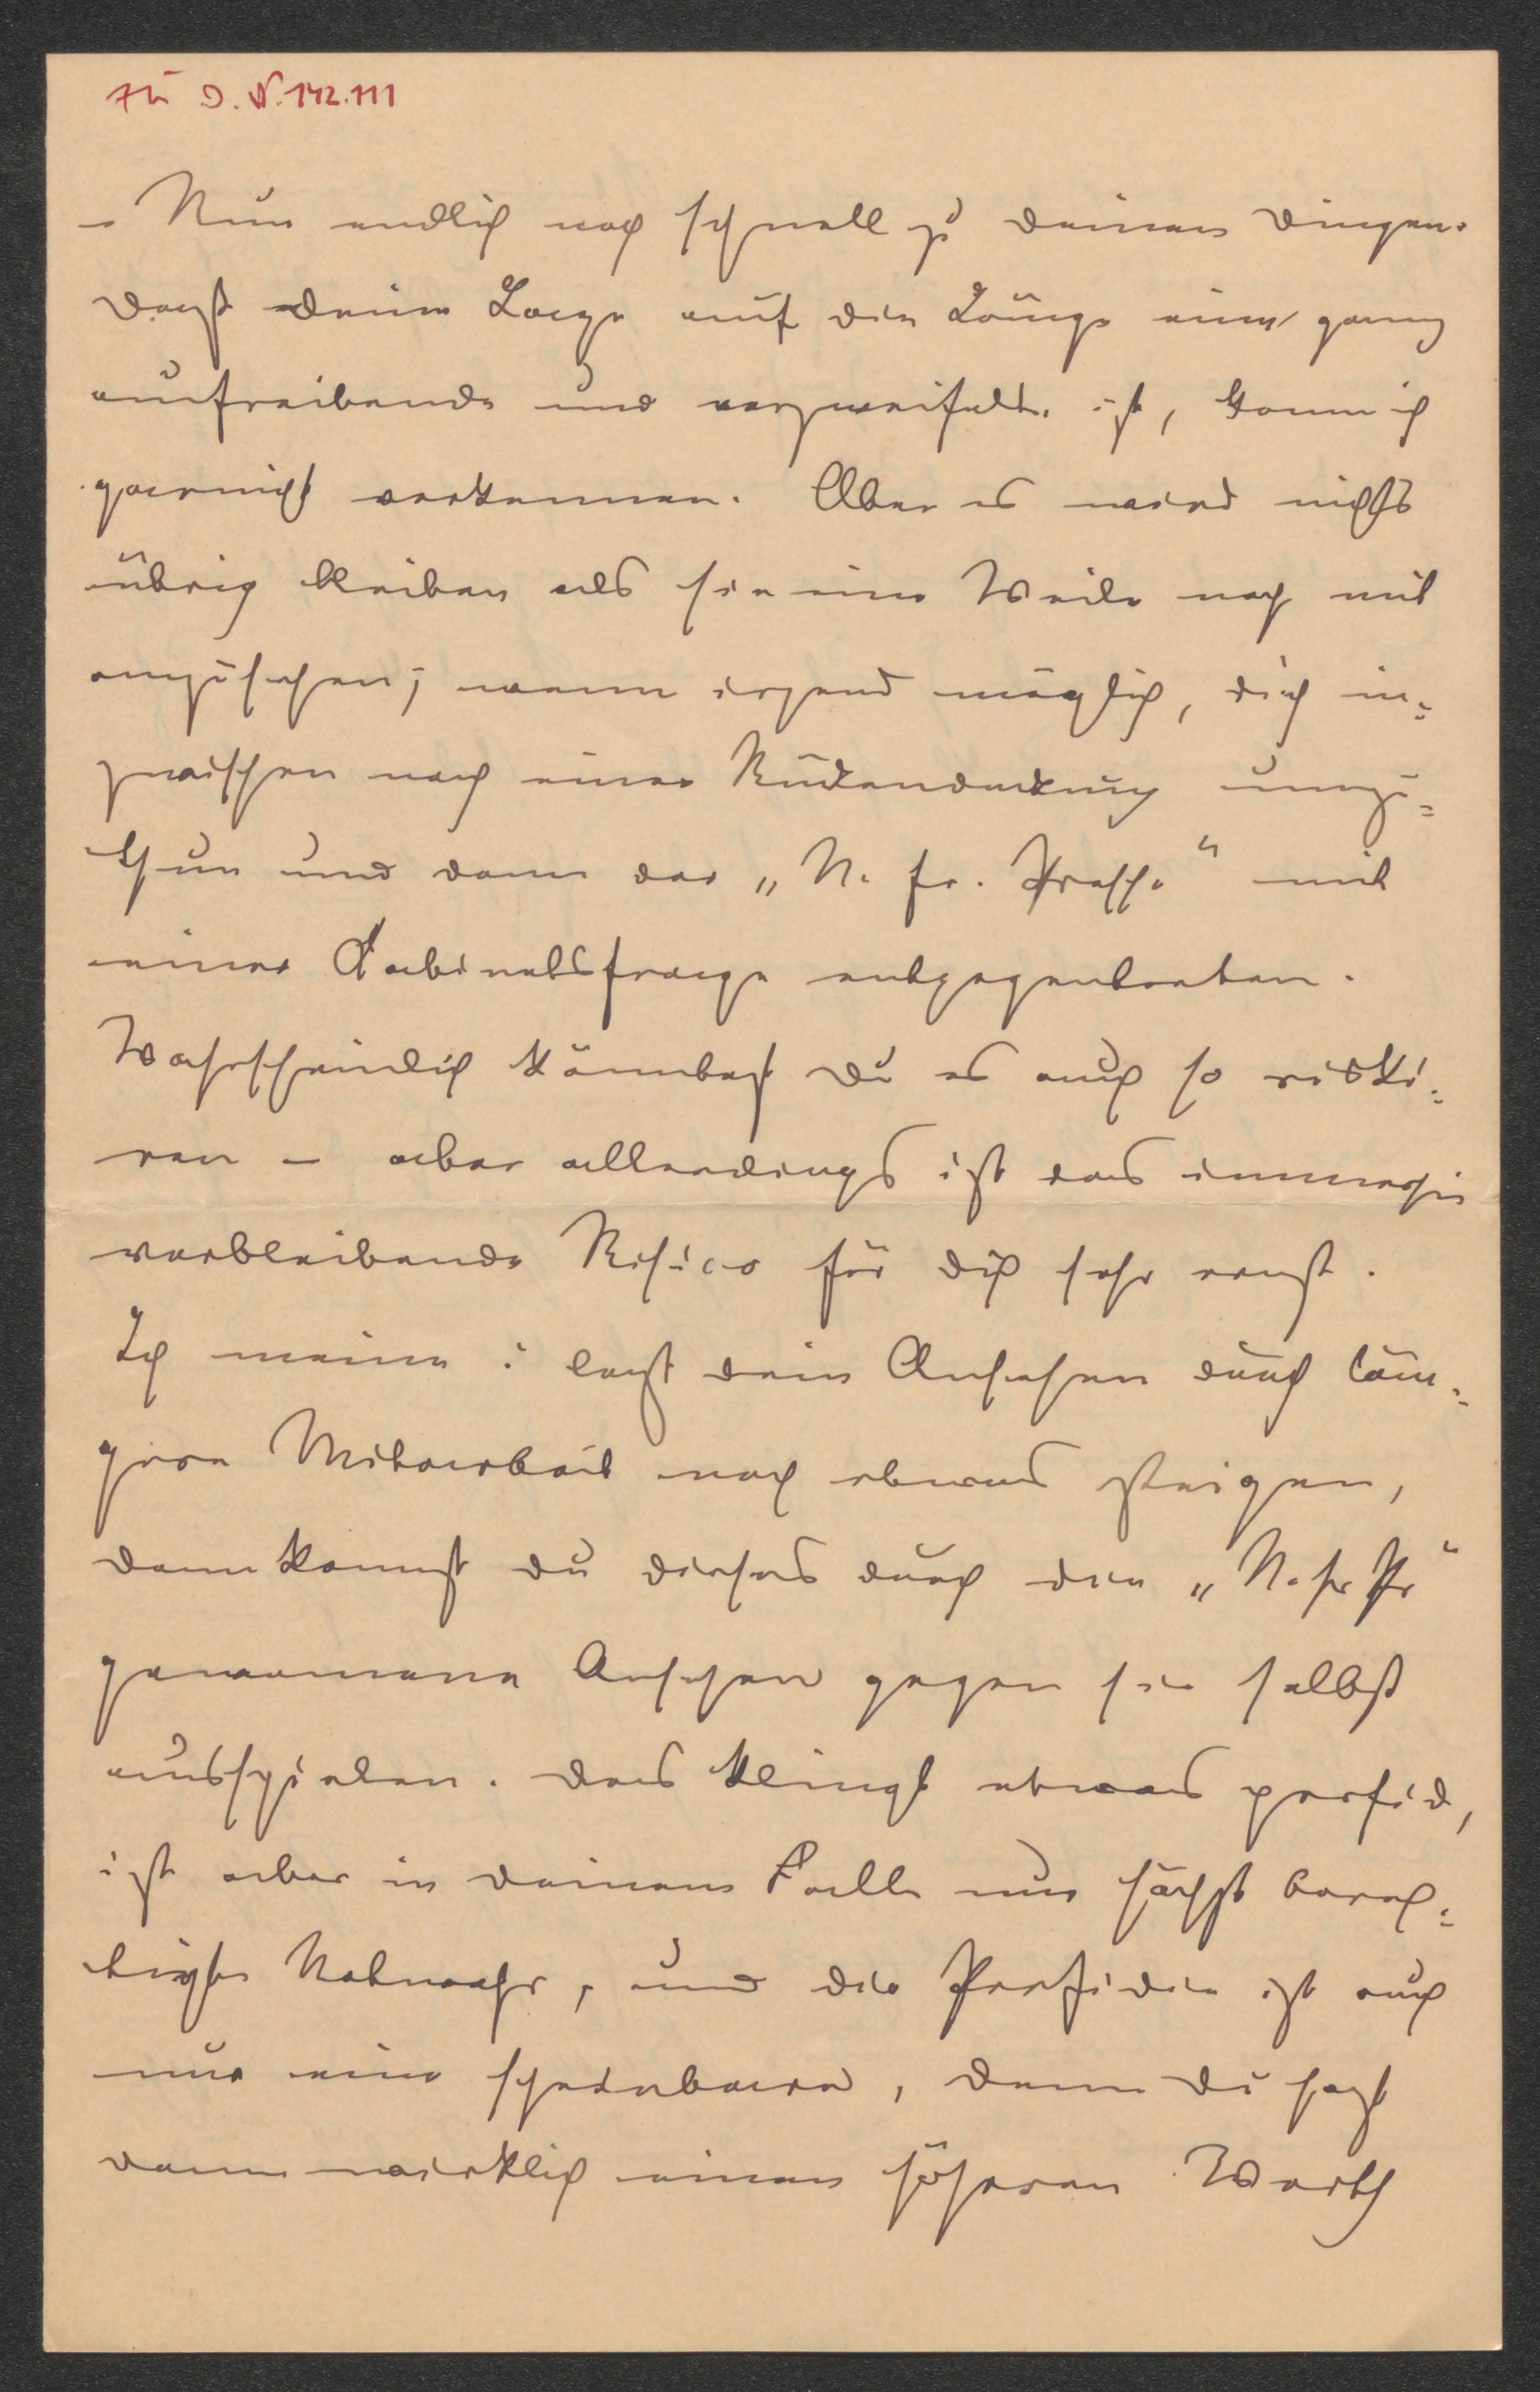 zu I. N. 142.111
– Nun endlich noch schnell zu deinen Dingen.
Daß deine Lage auf die Länge eine ganz
aufreibende und verzweifelte ist, kann ich
garnicht verkennen. Aber es wird nichts
übrig bleiben als sie eine Weile noch mit
anzusehen; wenn irgend möglich, dich in=
zwischen nach einer Rückendeckung umzu=
thun und dann der „N. fr. Presse“ mit
einer Cabinetsfrage entgegentreten.
Wahrscheinlich könntest du es auch so riski=
ren – aber allerdings ist das immerhin
verbleibende Risico für dich sehr ernst.
Ich meine: laß dein Ansehen durch län=
gere Mitarbeit noch etwas steigen,
dann kannst du dieses durch die „N. fr Pr“
gewonnene Ansehen gegen sie selbst
ausspielen. Das klingt etwas perfid,
ist aber in deinem Falle nur höchst berech=
tigte Notwehr, und die Perfidie ist auch
nur eine scheinbare, denn du hast
dann wirklich einen höheren Werth